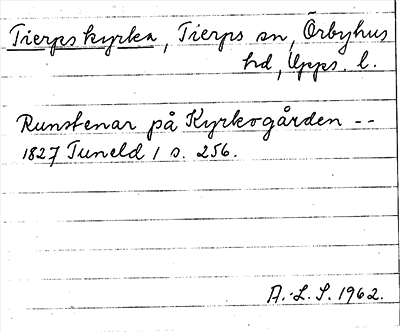 Tierps kyrka, Tierps sn, Örbyhus
hd, Upps. l.
Runstenar på Kyrkogården --
1827 Tuneld 1 s. 256.
A.-L. S. 1962.